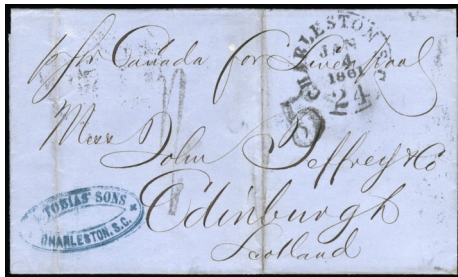 CHARLESTON S.C.
JAN
4
1861
24
p str Canada for Liverpool
Messr John Jeffrey & Co
Edinburgh
Scotland
TOBIAS' SONS
CHARLESTON, S.C.